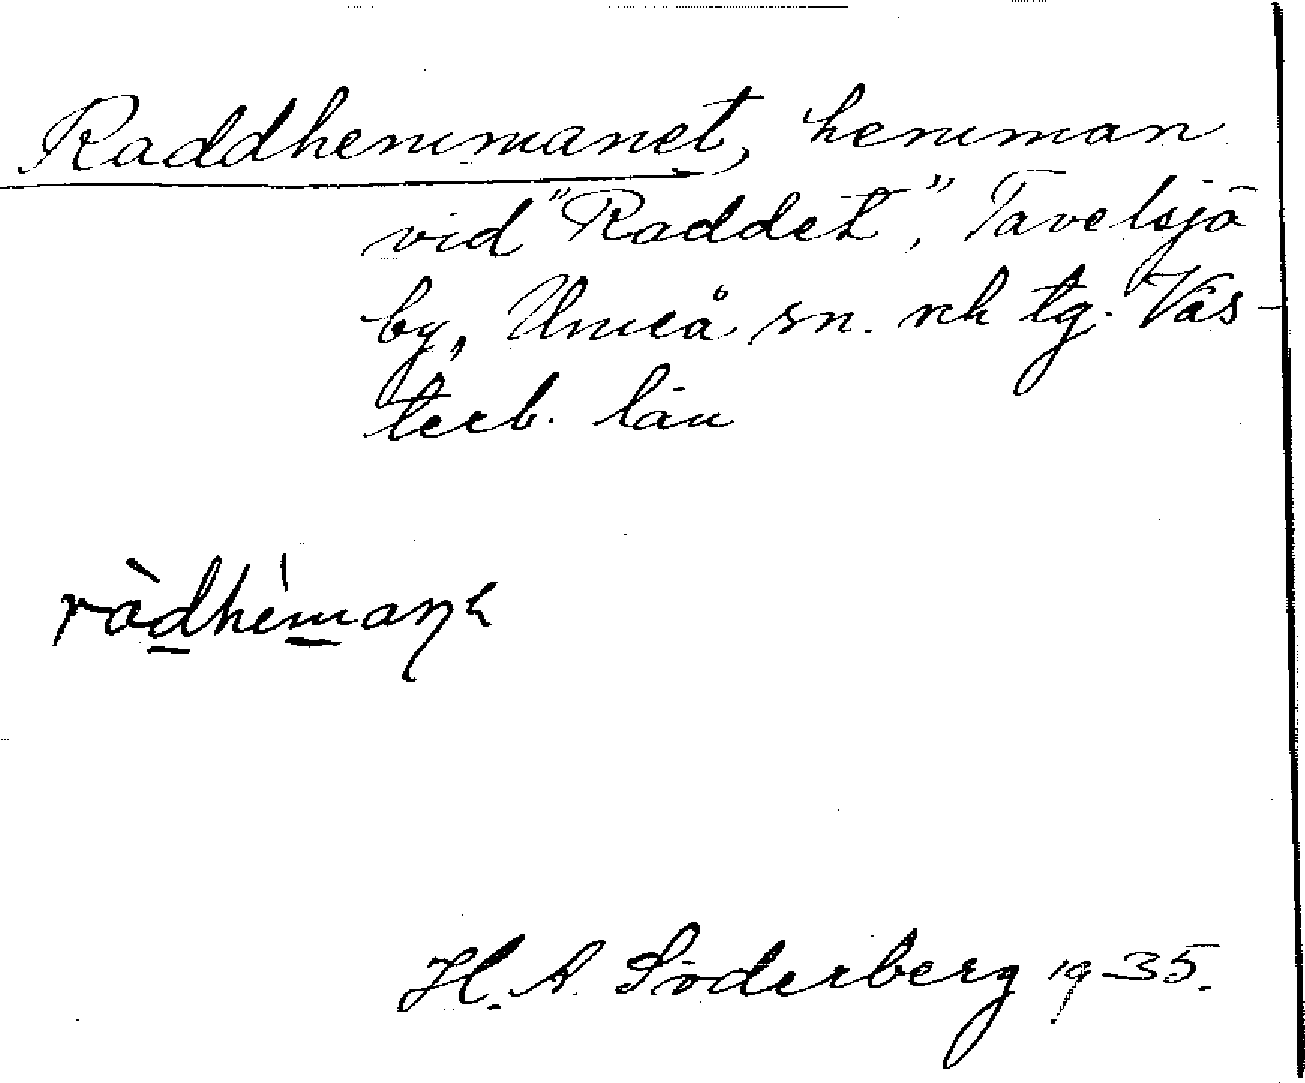 Raddhemmanet, hemman
vid "Raddet", Tavelsjö
by, Umeå sn. nh tg. Väs-
terb. län
H. A. Söderberg 1935.